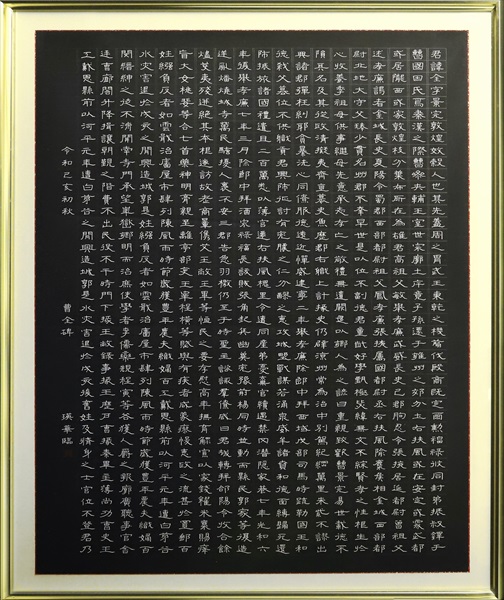 君諱全字景完敦煌效穀人也其先蓋周之胄武王秉乾之機翦伐殷商既定爾勳福祿攸同封弟叔振鐸于
曹國因氏焉秦漢之際曹參夾輔王室世宗廓土斥竟子孫遷于雍州之郊分止右扶風或在安定或處武都
或居隴西或家敦煌枝分葉布所在為雄君高祖父敏舉孝廉武威長史巴郡朐忍令張掖居延都尉曾祖父
述孝廉謁者金城長史夏陽令蜀郡西部都尉祖父鳳孝廉張掖屬國都尉丞右扶風隃麋侯相金城西部都
尉北地太守父琫少貫名州郡不幸早世是以位不副德君童齔好學甄極毖緯無文不綜賢孝之性根生於
心收養季祖母供事繼母先意承志存亡之敬禮無遺闕是以鄉人為之諺曰重親致歡曹景完易世載德不
隕其名及其從政清擬夷齊直慕史魚歷郡右職上計掾史仍辟涼州常為治中別駕紀綱萬里朱紫不謬出
典諸郡彈枉糾邪貪暴洗心同僚服德遠近憚威建寧二年舉孝廉除郎中拜西域戊部司馬時疏勒國王和
德弒父篡位不供職貢君興師征討有吮膿之仁分醪之惠攻城野戰謀若涌泉威牟諸賁和德面縛歸死還
師振旅諸國禮遺且二百萬悉以薄官遷右扶風槐里令遭同產弟憂棄官續遇禁冈潛隱家巷七年光和六
年復舉孝廉七年三月除郎中拜酒泉祿福長訞賊張角起兵幽冀兗豫荊楊同時並動而縣民郭家等復造
逆亂燔燒城寺萬民騷擾人裹不安三郡告急羽檄仍至于時聖主諮諏群僚咸曰君哉轉拜郃陽令收合餘
燼芟夷殘迸絕其本根遂訪故老商量儁艾王敞王畢等恤民之要存慰高年撫育鰥寡以家錢糴米粟賜癃
盲大女桃婓等合七首藥神明膏親至離亭部吏王宰程橫等賦與有疾者咸蒙瘳悛惠政之流甚於置郵百
姓繈負反者如雲戢治廧屋市肆列陳風雨時節歲獲豐年農夫織婦百工戴恩縣前以河平元年遭白茅谷
水灾害退於戊亥之間興造城郭是姓繈負反者如雲戢治廧屋市肆列陳風雨時節歲獲豐年農夫織婦百
聞縉紳之徒不濟開南寺門承望華嶽鄉明而治庶使學者李儒欒規程寅等各獲人爵之報廓廣聽事官舍
廷曹廊閣升降揖讓朝覲之階費不出民役不干時門下掾王敞錄事掾王畢主簿王歷戶曹掾秦尚功曹史王
工戴恩縣前以河平元年遭白茅谷水灾害退於戊亥之間興造城郭是水灾害退於戊亥後舊姓及脩身之士官位不登君乃
令和己亥初秋 曹全碑 瑛華臨